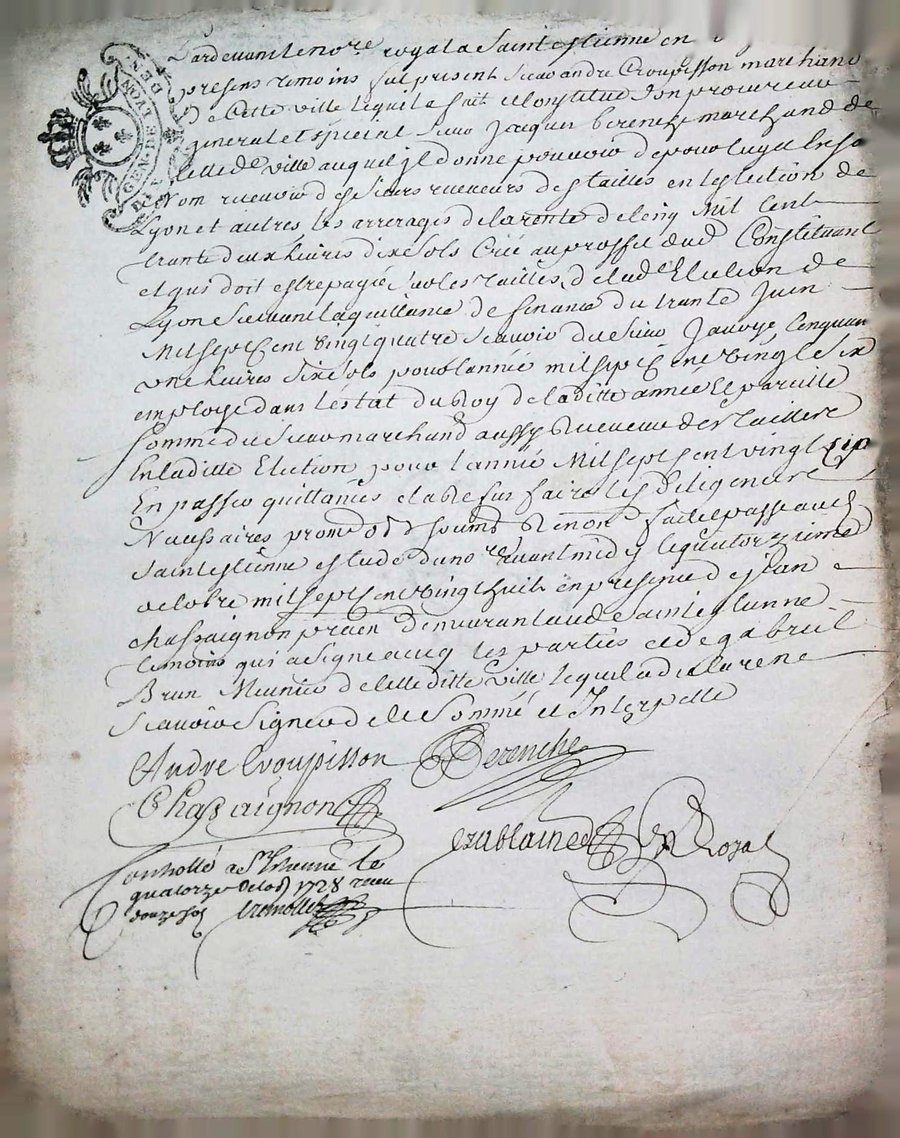 GEN. DE LYON. DEN
Pardevant le no.re royal a Saint estienne en
presens temoins fut present Sieur andré Croupisson marchand
de Cette ville lequel a fait et Constitué son procureur
general et special Sieur Jacques berenche marchand de
cette de ville auquel il donne pouvoir de pour luy et en so
Nom recevoir des Sieurs receveurs des tailles en l'election de
Lyon et autres les arrerages de la rente de Cinq Mil Cent
trante deux livres dix sols Creé au proffit dud Constituant
et qui doit estre payée sur les tailles de lad Election de
Lyon Suivant la quittance de finance du trante Juin
Mil sept Cent vingt quatre Scavoir du Sieur Cinquan
une livres Six sols pour l'année mil sept Cent vingt Six
employé dans l'estat du Roy de laditte année Et pareille
Somme du Sieur marchand aussy Receveur des tailles
En laditte Election pour l'année Mil sept Cent vingt
En passer quittances et faire les Diligences
Necessaires promet Soumet Renon fait et passé aud
Saint estienne estude dud no.re avant midy le quatorzieme
octobre mil sept Cent vingt huit en presence de Jean
chassaignon demeurant aud Saint estienne
temoins qui a signé avec les parties et de gabriel
Brun Meunier de cette ditte ville lequel a declaré ne
Scavoir Signer de Ce Sommé et Interpellé
André Croupisson Berenche
Chassaignon
Royal
Controllé a St Etienne le
quatorze 1728 receu
douze sols